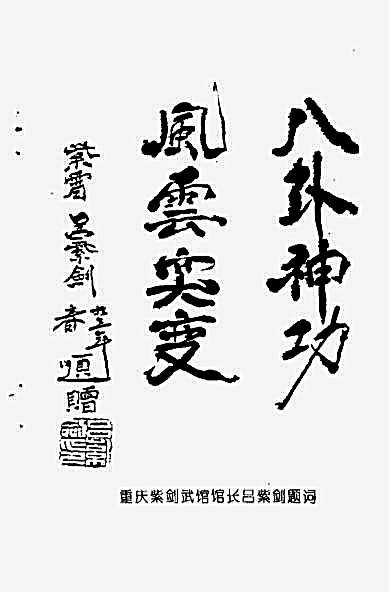 八卦神功
風雲突变
紫霄 吕紫剑 贈
重庆紫剑武馆馆长吕紫剑题词